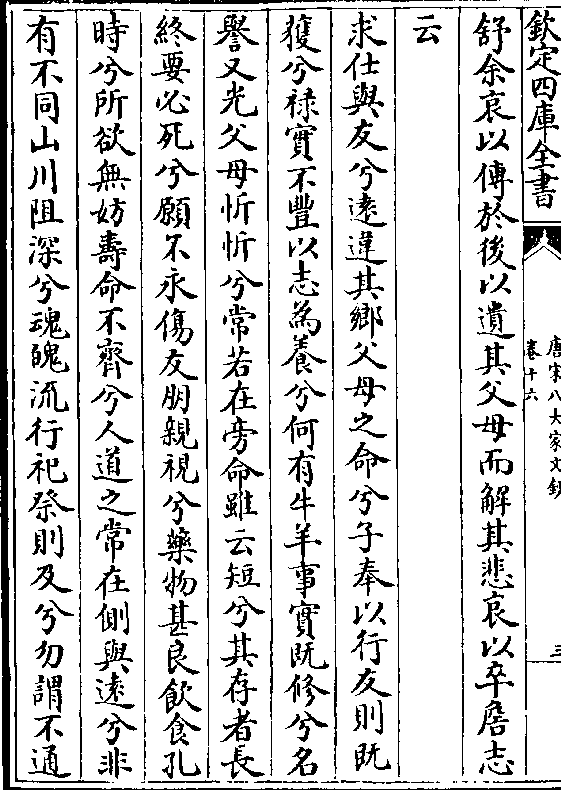 欽定四庫全書
唐宋八大家文鈔
卷十六
三
舒余哀以傳於後以遺其父母而解其悲哀以卒詹志
云
求仕與友兮遠違其鄉父母之命兮子奉以行友則既
獲兮祿實不豐以志為養兮何有牛羊事實既修兮名
譽又光父母忻忻兮常若在旁命雖云短兮其存者長
終要必死兮願不永傷友朋親視兮藥物甚良飲食孔
時兮所欲無妨壽命不齊兮人道之常在側與遠兮非
有不同山川阻深兮魂魄流行祀祭則及兮勿謂不通